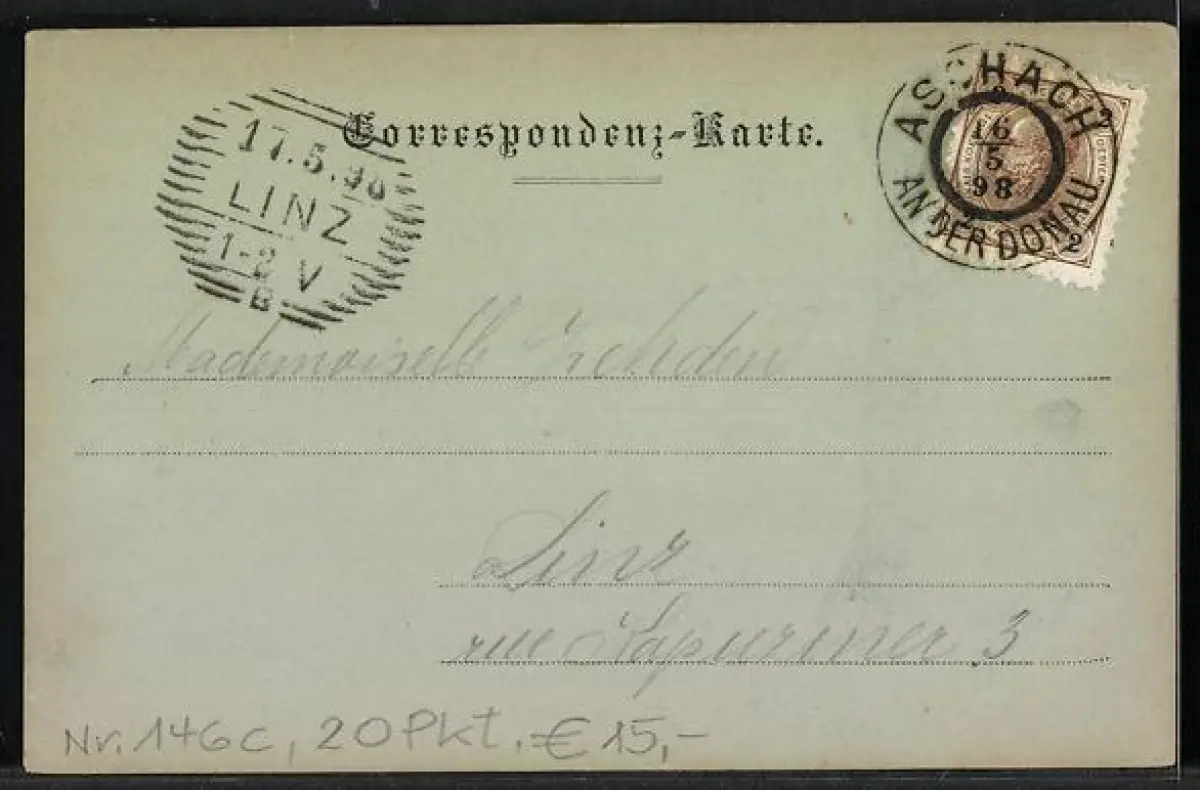 Correspondenz-Karte.
ASCHACH
16
5
98
AN DER DONAU
2
17.5.98
LINZ
1-2 V
B
Mademoiselle
Linz
rue 3
Nr. 146c, 20 Pkt. € 15,-